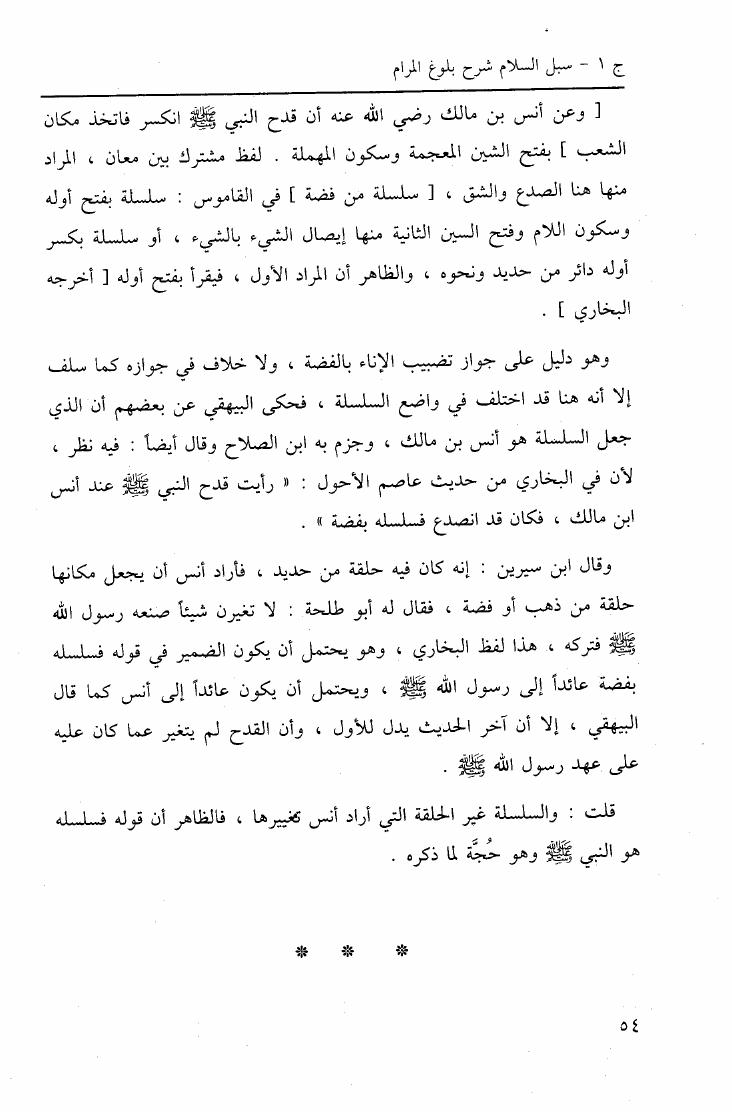 ج ١ - سبل السلام شرح بلوغ المرام
[ وعن أنس بن مالك رضي الله عنه أن قدح النبي ﷺ انكسر فاتخذ مكان
الشعب ] بفتح الشين المعجمة وسكون المهملة . لفظ مشترك بين معان ، المراد
منها هنا الصدع والشق ، [ سلسلة من فضة ] في القاموس : سلسلة بفتح أوله
وسكون اللام وفتح السين الثانية منها إيصال الشيء بالشيء ، أو سلسلة بكسر
أوله دائر من حديد ونحوه ، والظاهر أن المراد الأول ، فيقرأ بفتح أوله [ أخرجه
البخاري ] .
وهو دليل على جواز تضبيب الإناء بالفضة ، ولا خلاف في جوازه كما سلف
إلا أنه هنا قد اختلف في واضع السلسلة ، فحكى البيهقي عن بعضهم أن الذي
جعل السلسلة هو أنس بن مالك ، وجزم به ابن الصلاح وقال أيضاً : فيه نظر ،
لأن في البخاري من حديث عاصم الأحول : « رأيت قدح النبي ﷺ عند أنس
ابن مالك ، فكان قد انصدع فسلسله بفضة » .
وقال ابن سيرين : إنه كان فيه حلقة من حديد ، فأراد أنس أن يجعل مكانها
حلقة من ذهب أو فضة ، فقال له أبو طلحة : لا تغيرن شيئاً صنعه رسول الله
ﷺ فتركه ، هذا لفظ البخاري ، وهو يحتمل أن يكون الضمير في قوله فسلسله
بفضة عائداً إلى رسول الله ﷺ ، ويحتمل أن يكون عائداً إلى أنس كما قال
البيهقي ، إلا أن آخر الحديث يدل للأول ، وأن القدح لم يتغير عما كان عليه
على عهد رسول الله ﷺ .
قلت : والسلسلة غير الحلقة التي أراد أنس تغييرها ، فالظاهر أن قوله فسلسله
هو النبي ﷺ وهو حُجَّة لما ذكره .
* * *
٥٤